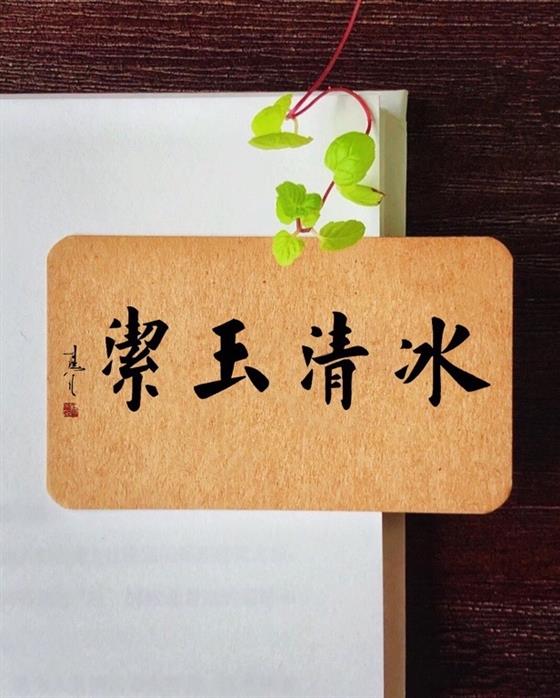 冰清玉潔